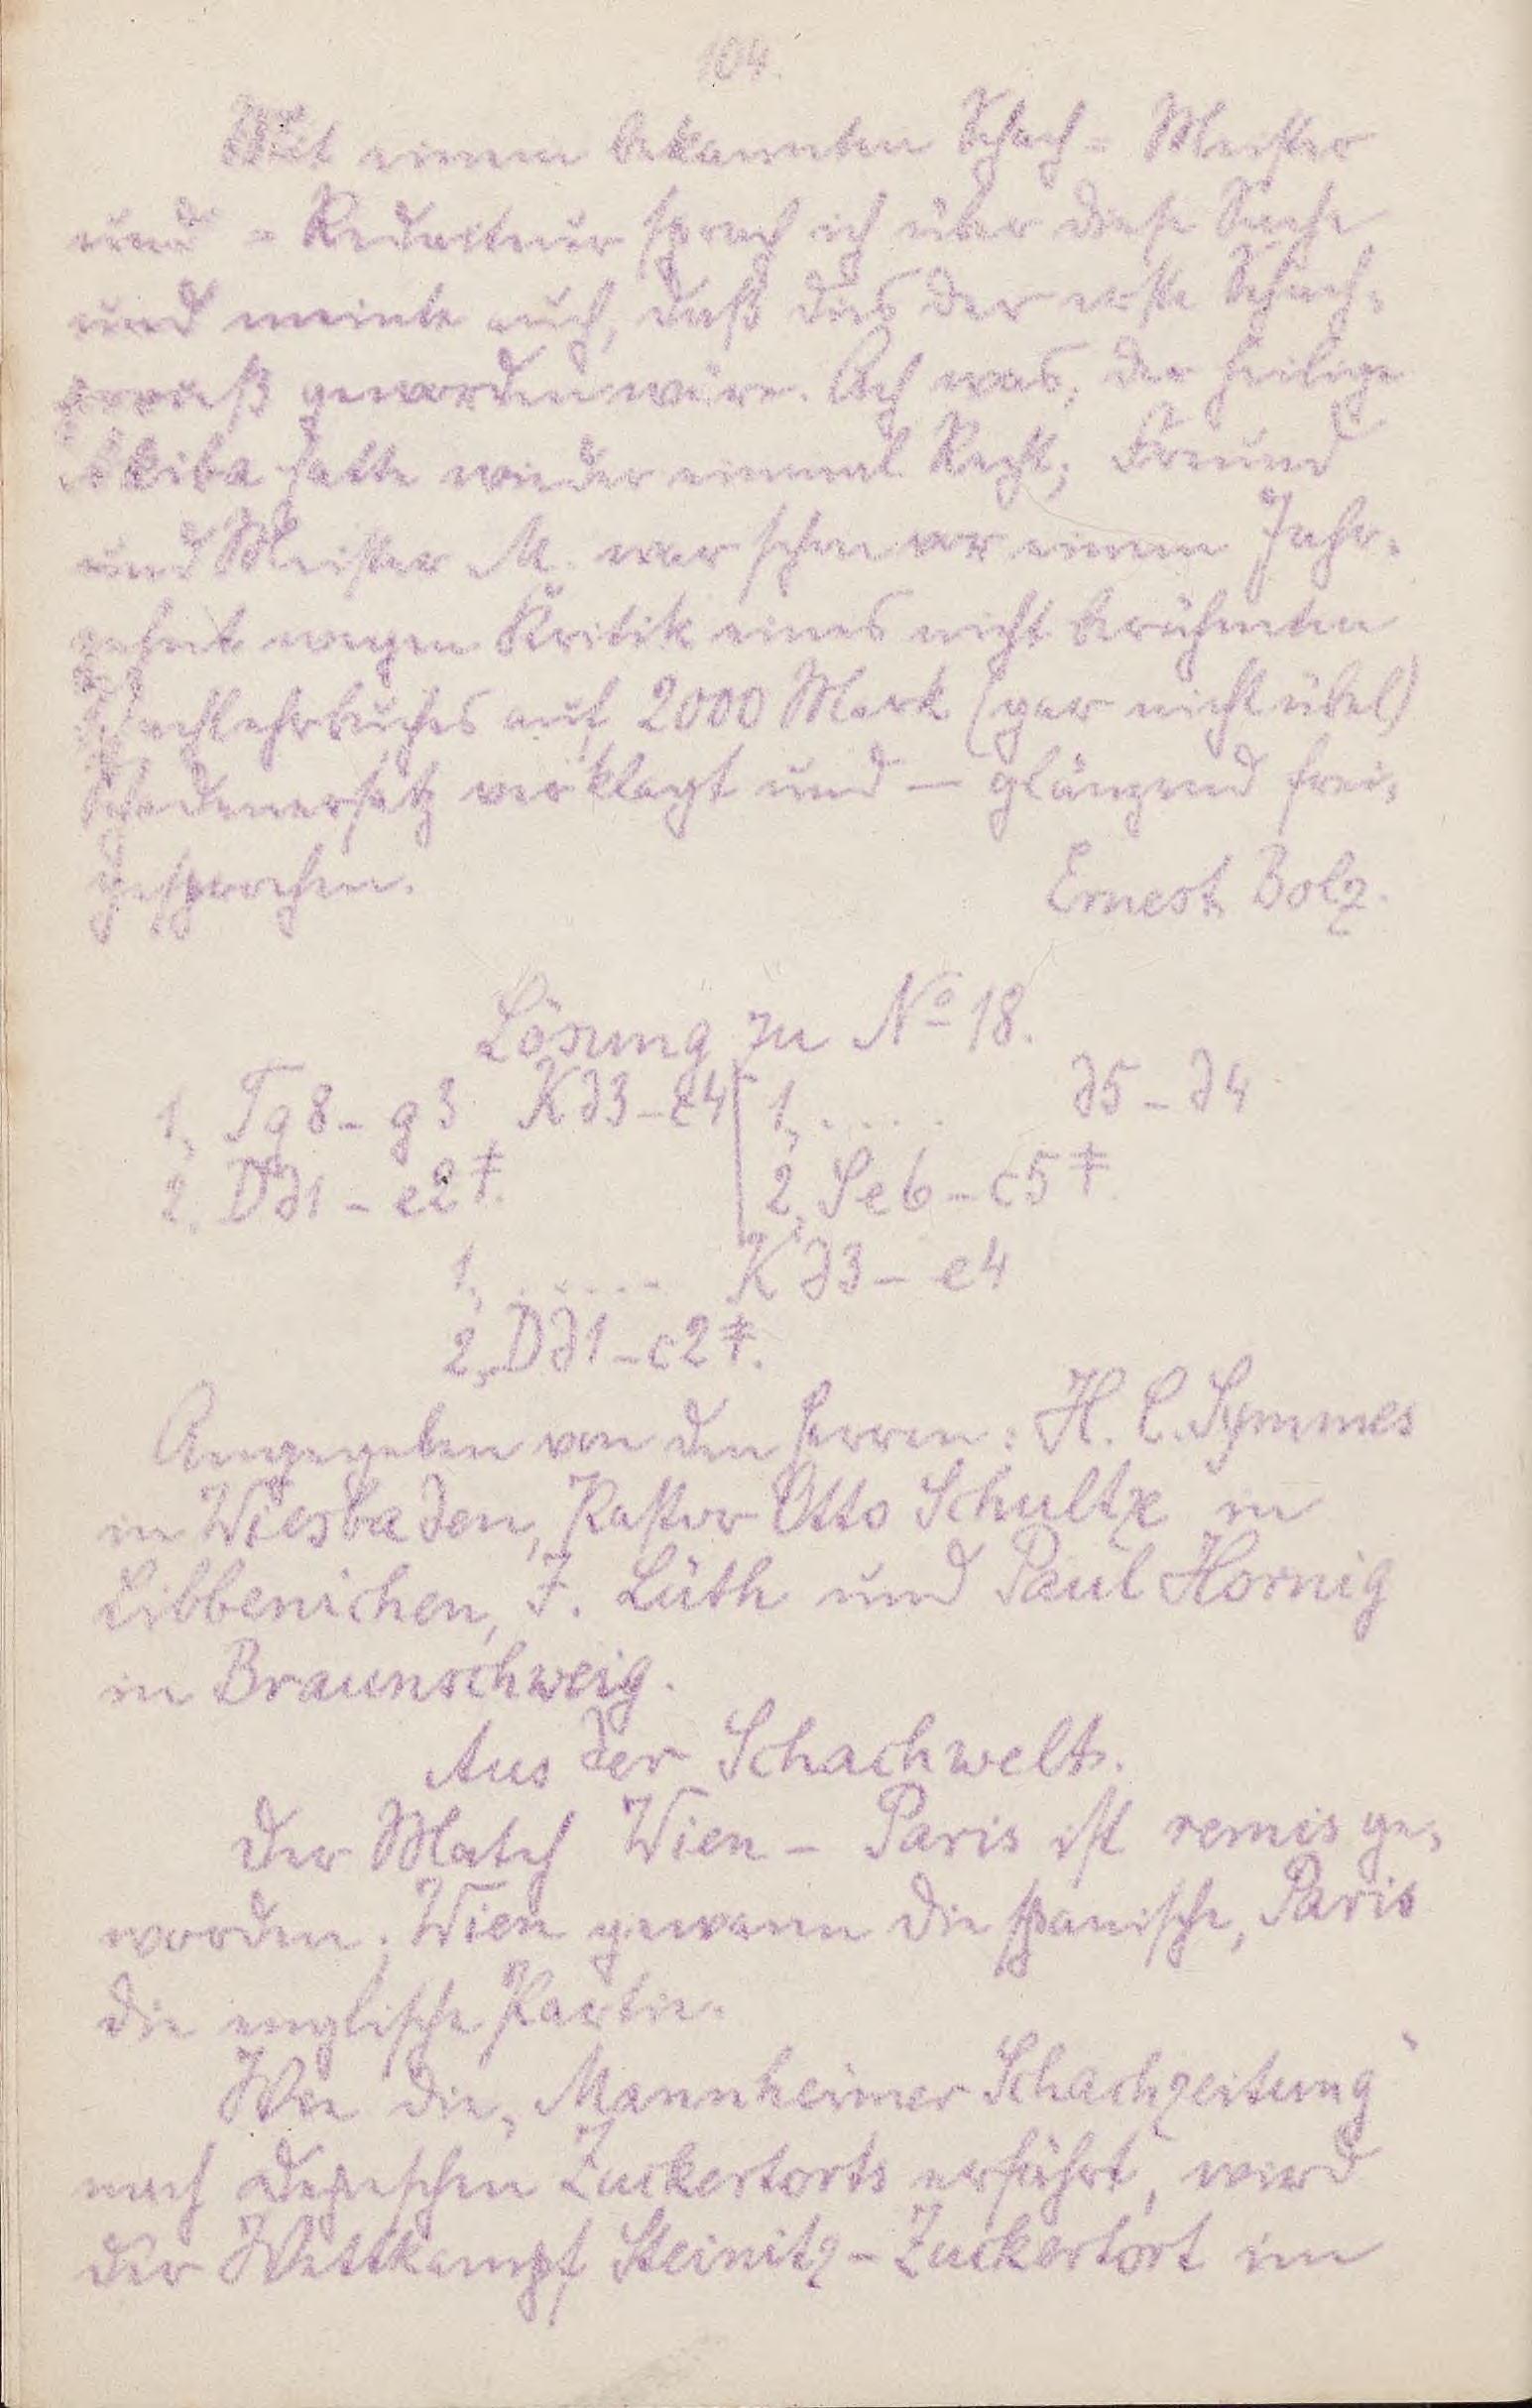 104.
Mit einem bekannten Schach= Meister
und = Redacteur sprach ich über diese Sache
und meinte auch, daß dies der erste Schach=
prozeß geworden wäre. Ach was, der heilige
Akiba hatte wieder einmal Recht; Freund
und Meister M. war schon vor einem Jahr=
zehnt wegen Kritik eines nicht berühmten
Schachlehrbuches auf 2000 Mark (gar nicht übel)
Schadenersatz verklagt und — glänzend frei=
gesprochen.
Ernest Bolz.
Lösung zu No 18.
1, Tg8 - g3 Kd3 - c4 | 1, ..... d5 - d4
2. Dd1 - e2 ‡. | 2, Se6 - c5 ‡
1, ...... Kd3 - e4
2, Dd1 - c2 ‡.
Angegeben von den Herren: H. C. Symmes
in Wiesbaden, Pastor Otto Schultze in
Libbenichen, F. Lüth und Paul Hornig
in Braunschweig.
Aus der Schachwelt.
Der Match Wien - Paris ist remis ge=
worden. Wien gewann die spanische, Paris
die englische Partie.
Wie die „Mannheimer Schachzeitung“
nach Depeschen Zuckertorts erfährt, wird
der Wettkampf Steinitz - Zuckertort im